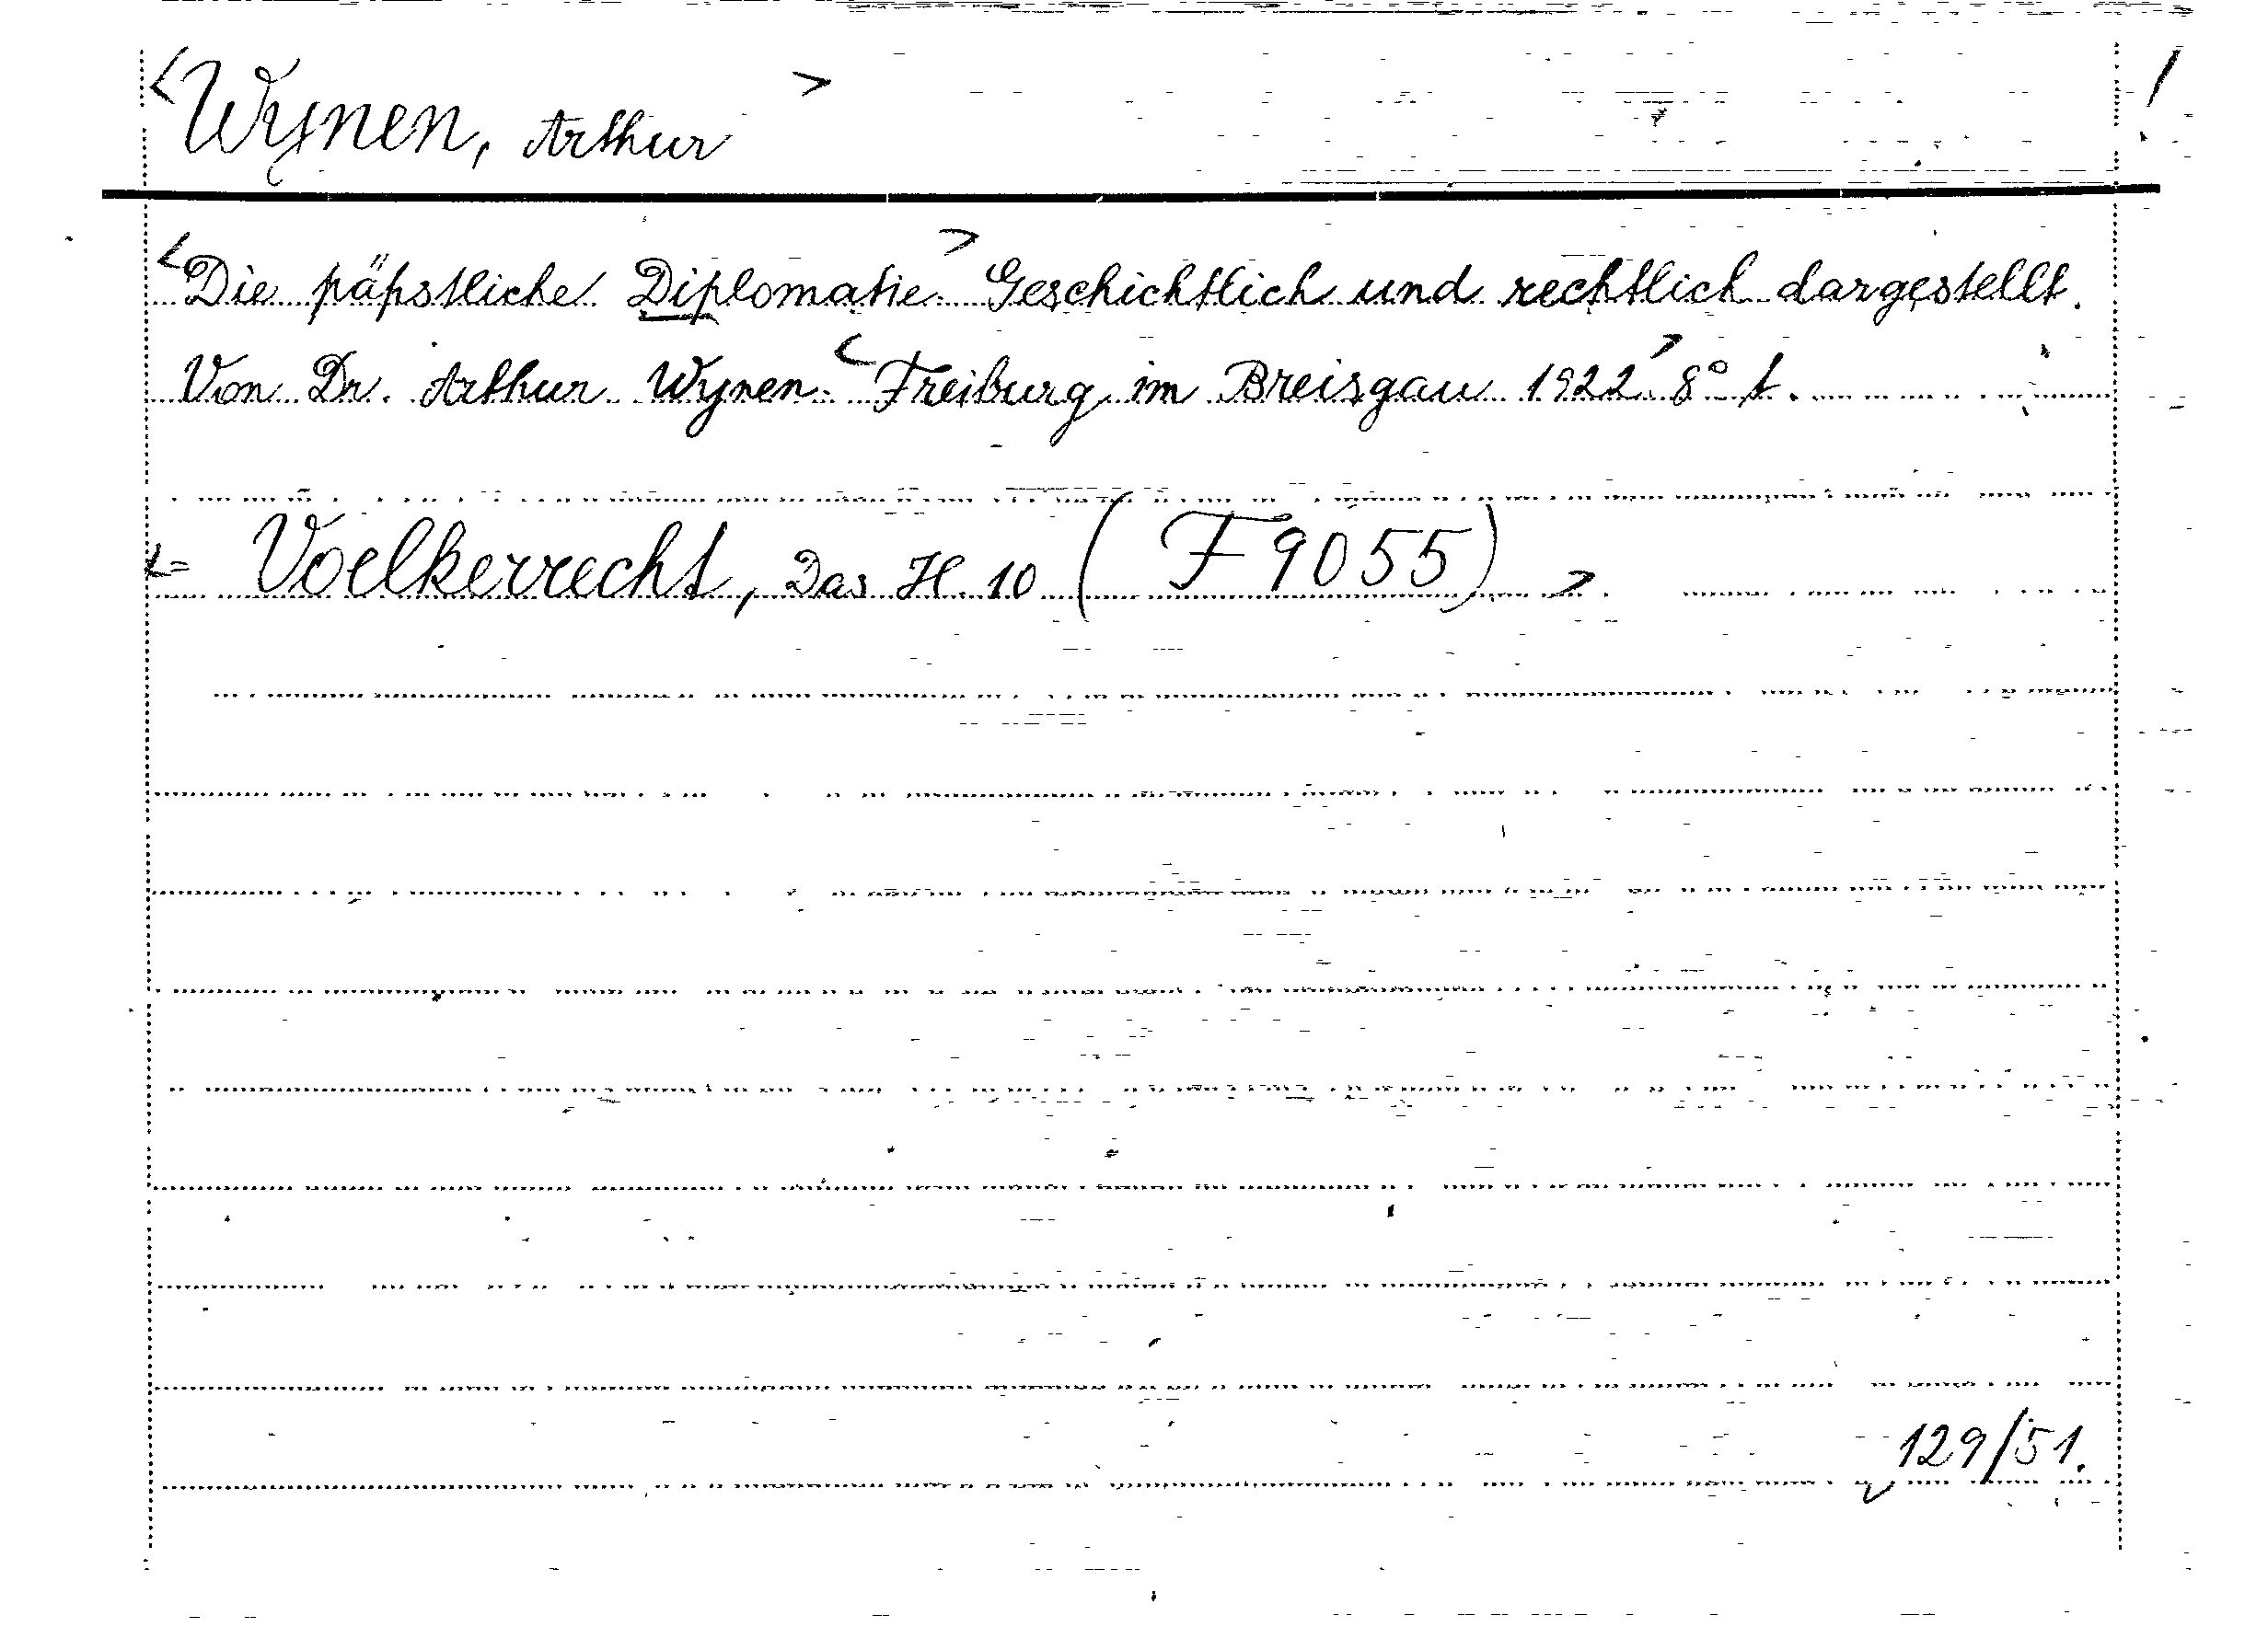 <Wynen, Arthur> /
<Die päpstliche Diplomatie.> Geschichtlich und rechtlich dargestellt.
Von Dr. Arthur Wynen. <Freiburg im Breisgau 1922> 8° t.
<= Voelkerrecht, Das H. 10 (F 9055)>
129/51.